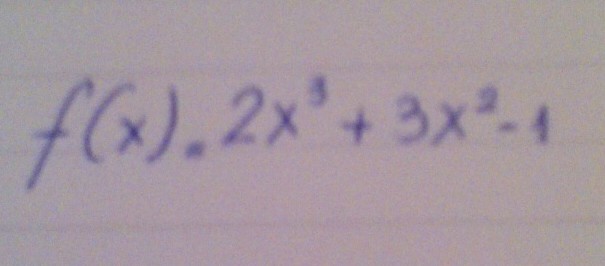 f(x) = 2x³ + 3x² - 1